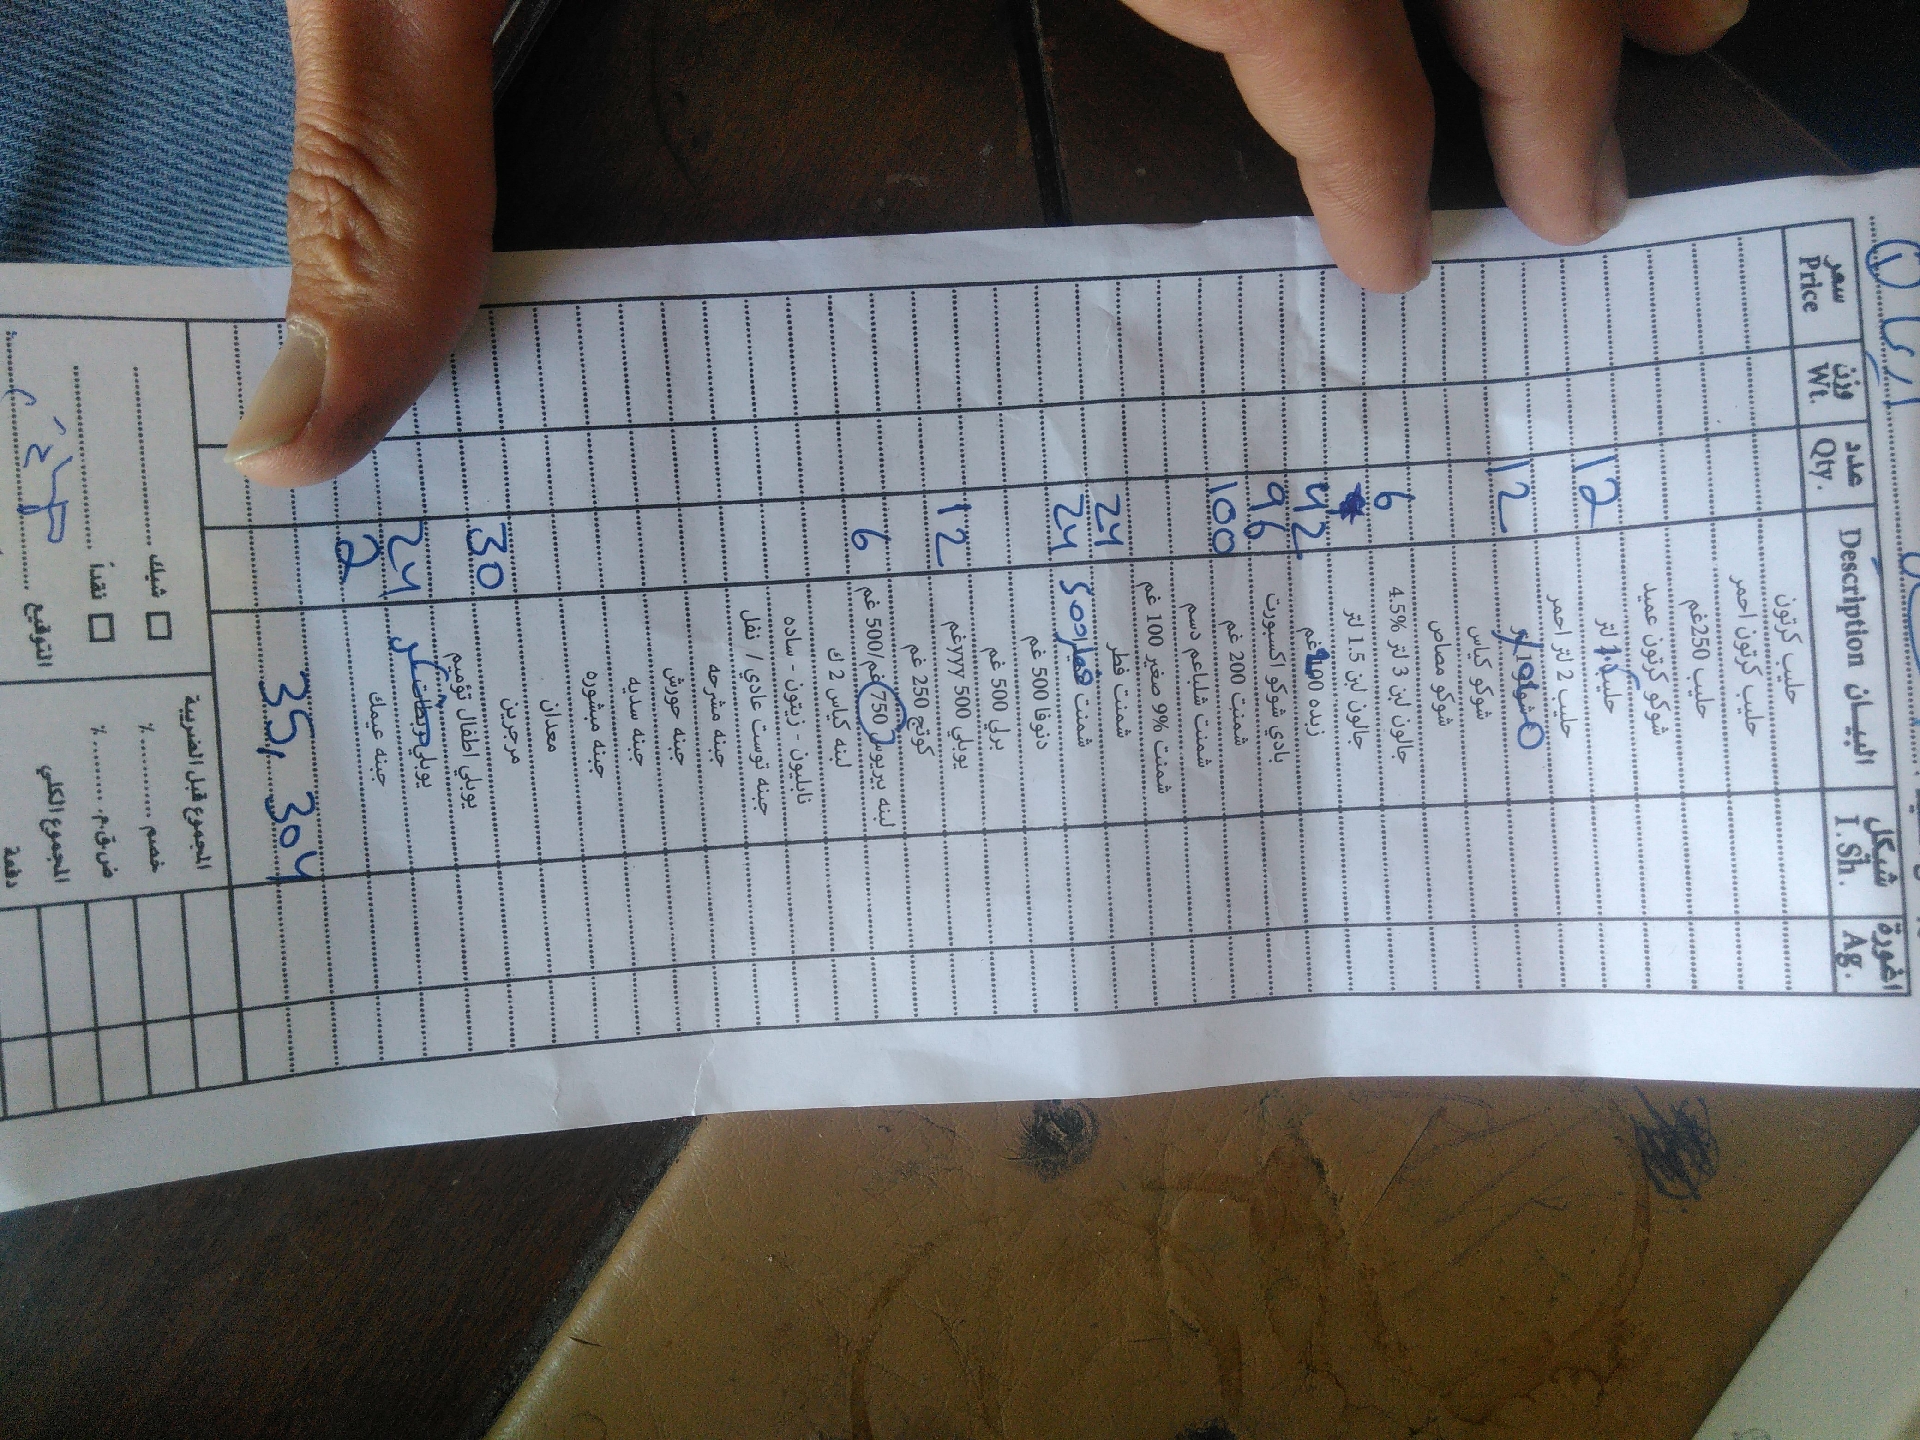 سعر وزن عدد البيان شيكل اغورة
Price Wt. Qty. Description I.Sh. Ag.
حليب كرتون
حليب كرتون احمر
حليب 250غم
شوكو كرتون عميد
12 حليب لتر
حليب 2 لتر احمر
12
شوكو كياس
شوكو مصاص
6 جالون لبن 3 لتر 4.5%
جالون لبن 1.5 لتر
42 زبده غم
96 بادي شوكو اكسبورت
100 شمنت 200 غم
شمنت شلباعم دسم
شمنت 9% صغير 100 غم
24 شمنت فطر
24 شمنت
دنوفا 500 غم
برلي 500 غم
12 يوبلي 500 غمyyy
كوتج 250 غم
6 لبنه بيريوس 750غم/500 غم
لبنه كياس 2 ك
نابليون - زيتون - ساده
جبنه توست عادي / نفل
جبنه مشرحه
جبنه حورش
جبنه سديه
جبنه مبشوره
معدان
مرجرين
30 يوبلي اطفال تؤميم
24 يوبلي
2 جبنه عيمك
35, 304
المجموع قبل الضريبة
شيك خصم ........%
نقداً ض.ق.م. ........%
المجموع الكلي
التوقيع
دفعة